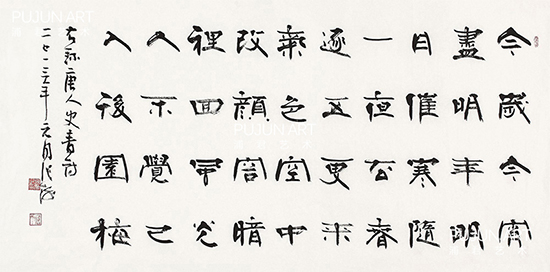 今歲今宵
盡明年明
日催寒隨
一夜去春
逐五更來
氣色空中
改顏容暗
裡回風光
人不覺已
入後園梅
錄唐人史青詩
二〇一三年元月
PUJUN ART
PUJUN ART
PUJUN ART